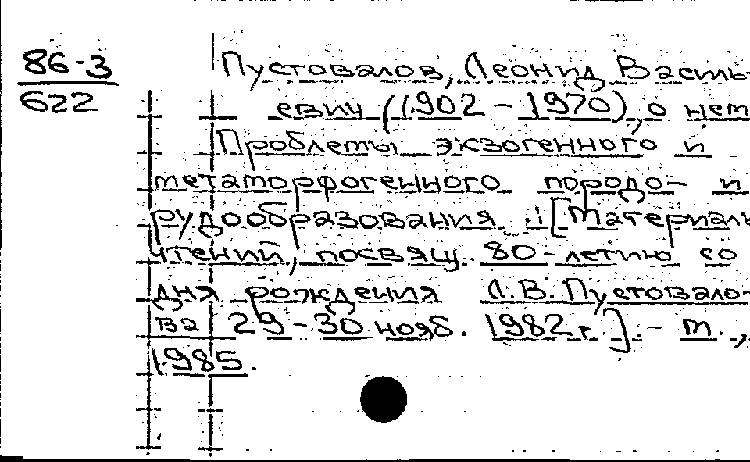 86-3
622
Пустовалов, Леонид Василь-
евич (1902 - 1970), о нем
Проблемы экзогенного и
метаморфогенного породо- и
рудообразования : [Материалы
чтений, посвящ. 80-летию со
дня рождения Л.В. Пустовало-
ва 29-30 нояб. 1982 г.]. - М.,
1985.